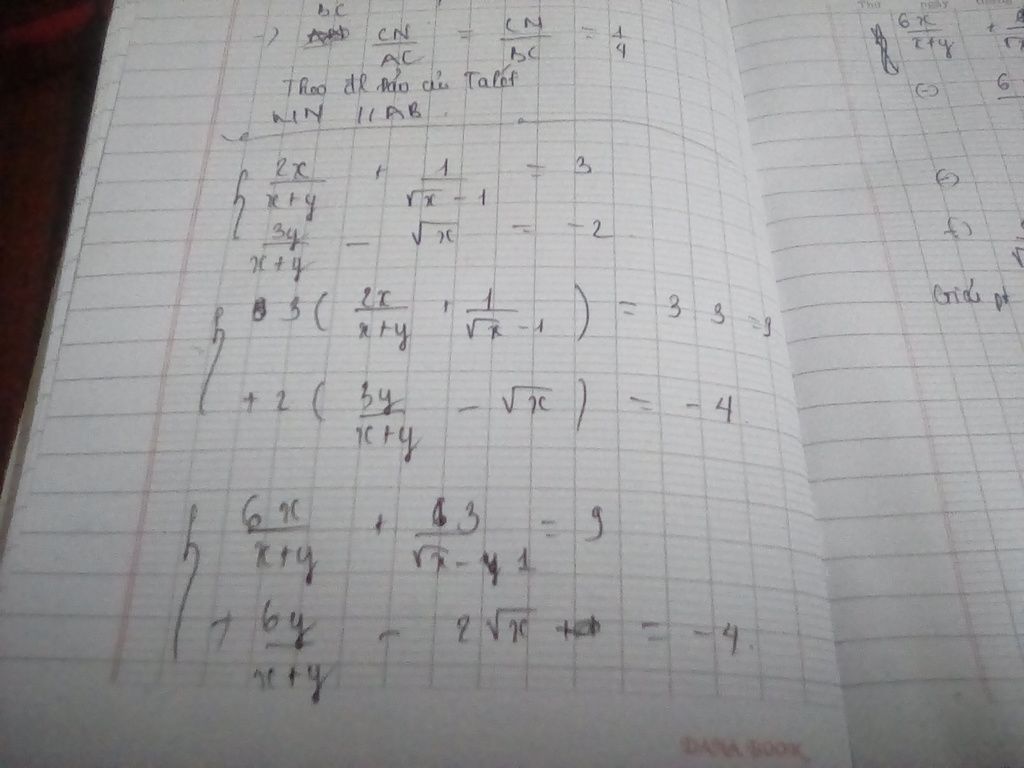 BC
→ CN/AC = CN/BC = 1/4
Theo đl đảo của Talet
MN // AB
{ 2x/(x+y) + 1/(√x - 1) = 3
3y/(x+y) - √x = -2
{ 3 ( 2x/(x+y) + 1/(√x - 1) ) = 3 3 = 9
+ 2 ( 3y/(x+y) - √x ) = -4
{ 6x/(x+y) + 3/(√x - 1) = 9
+ 6y/(x+y) - 2√x = -4
DANA BOOK
Thứ ngày
{ 6x/(x+y) +
(=) 6
(=)
f)
Giải pt